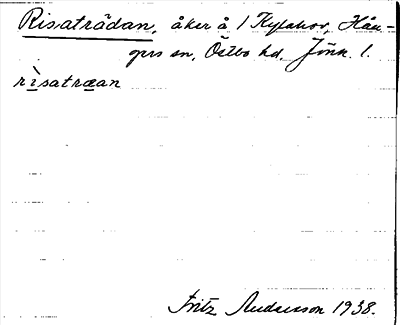 Risaträdan, åker å 1 Kylahov, Hån-
gers sn, Östbo hd. Jönk. l.
rìsatræan
Fritz Andersson 1938.